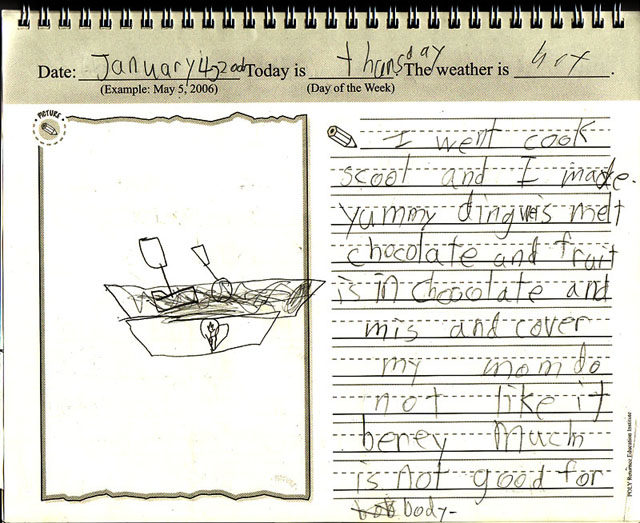 Date: January 4, 200 Today is thansday The weather is
(Example: May 5, 2006) (Day of the Week)
PICTURE
I went cook
scool and I made.
yummy ding melt
chocolate and fruit
is in chocolate and
mis and cover
my mom do
not like it
berey Much
is not good for
body-
POLY Reading Education Institute